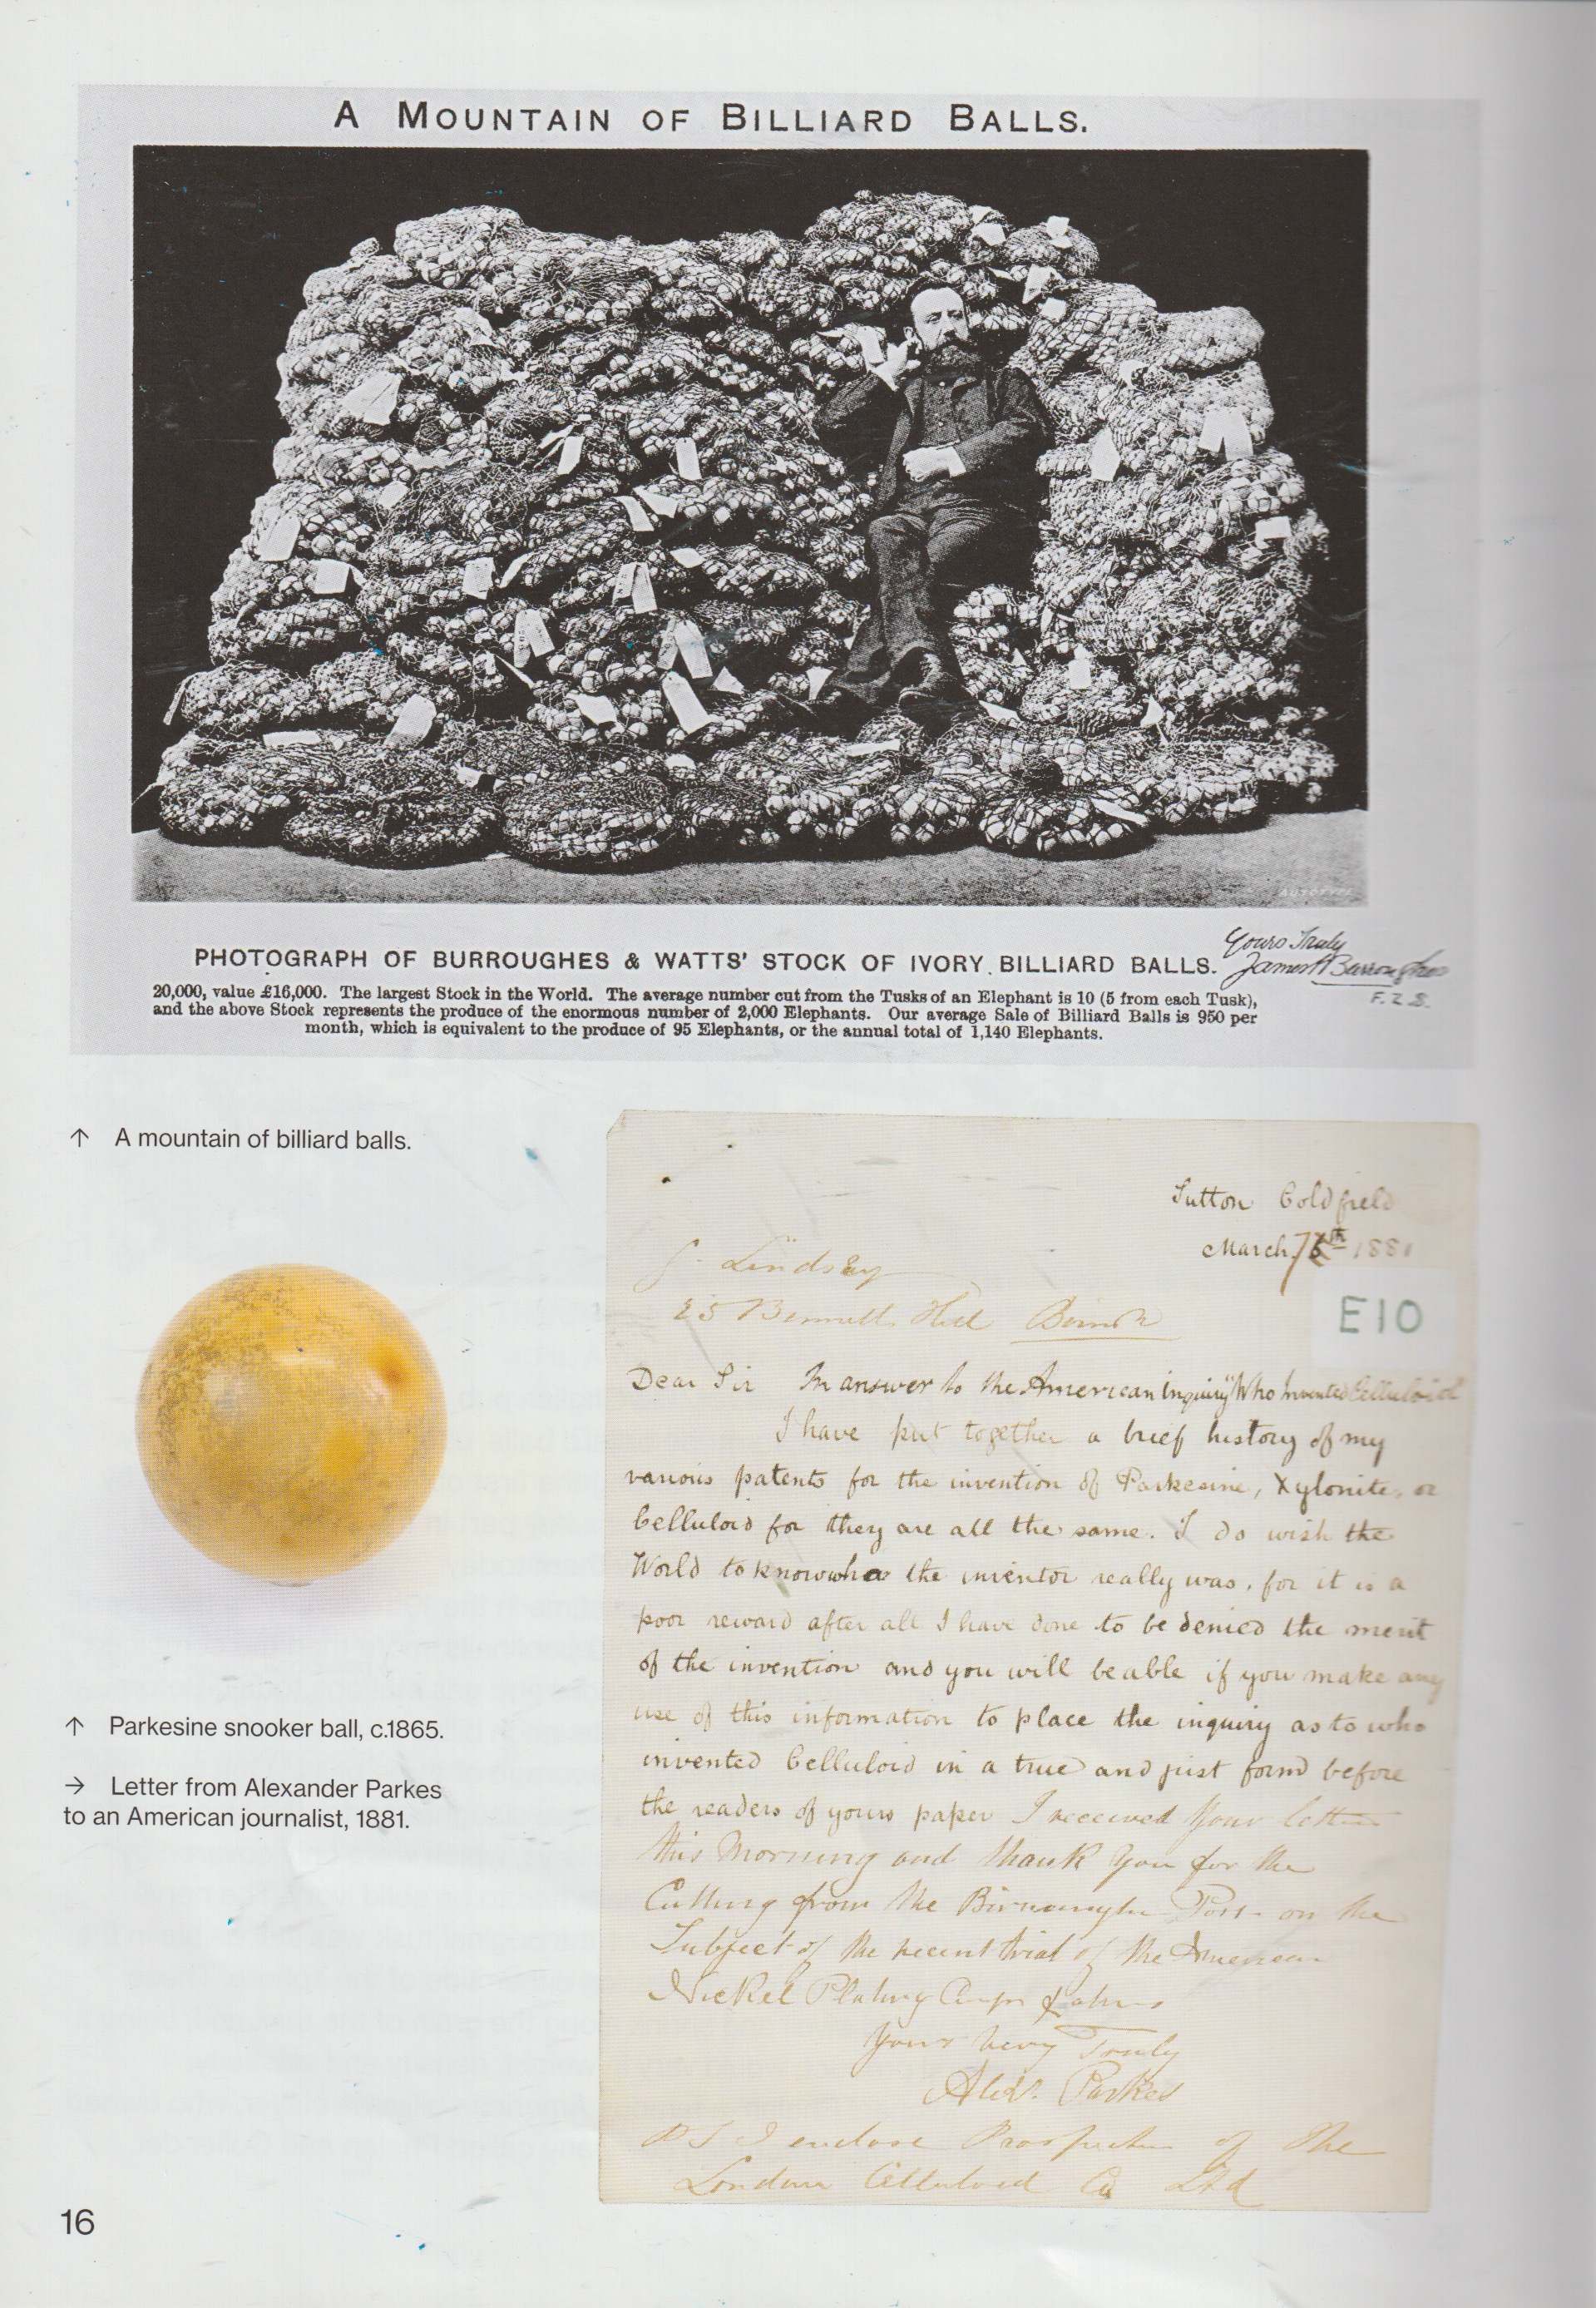 A MOUNTAIN OF BILLIARD BALLS.
AUTOTYPE
PHOTOGRAPH OF BURROUGHES & WATTS' STOCK OF IVORY BILLIARD BALLS.
Yours Truly
James Burroughes
F. Z. S.
20,000, value £16,000. The largest Stock in the World. The average number cut from the Tusks of an Elephant is 10 (5 from each Tusk),
and the above Stock represents the produce of the enormous number of 2,000 Elephants. Our average Sale of Billiard Balls is 950 per
month, which is equivalent to the produce of 95 Elephants, or the annual total of 1,140 Elephants.
↑ A mountain of billiard balls.
↑ Parkesine snooker ball, c.1865.
→ Letter from Alexander Parkes
to an American journalist, 1881.
Sutton Coldfield
March 1881
Lindsay
Hill Birm
E10
Dear Sir In answer to the American inquiry "Who Invented Celluloid"
I have put together a brief history of my
various patents for the invention of Parkesine, Xylonite, or
Celluloid for they are all the same. I do wish the
World to know who the inventor really was, for it is a
poor reward after all I have done to be denied the merit
of the invention and you will be able if you make any
use of this information to place the inquiry as to who
invented Celluloid in a true and just form before
the readers of yours paper I received your letter
this Morning and thank you for the
Cutting from the Post on the
Subject of the recent trial of the American
Nickel Plating
Yours Very Truly
Alex. Parkes
PS I enclose Prospectus of the
London Celluloid Co Ltd
16